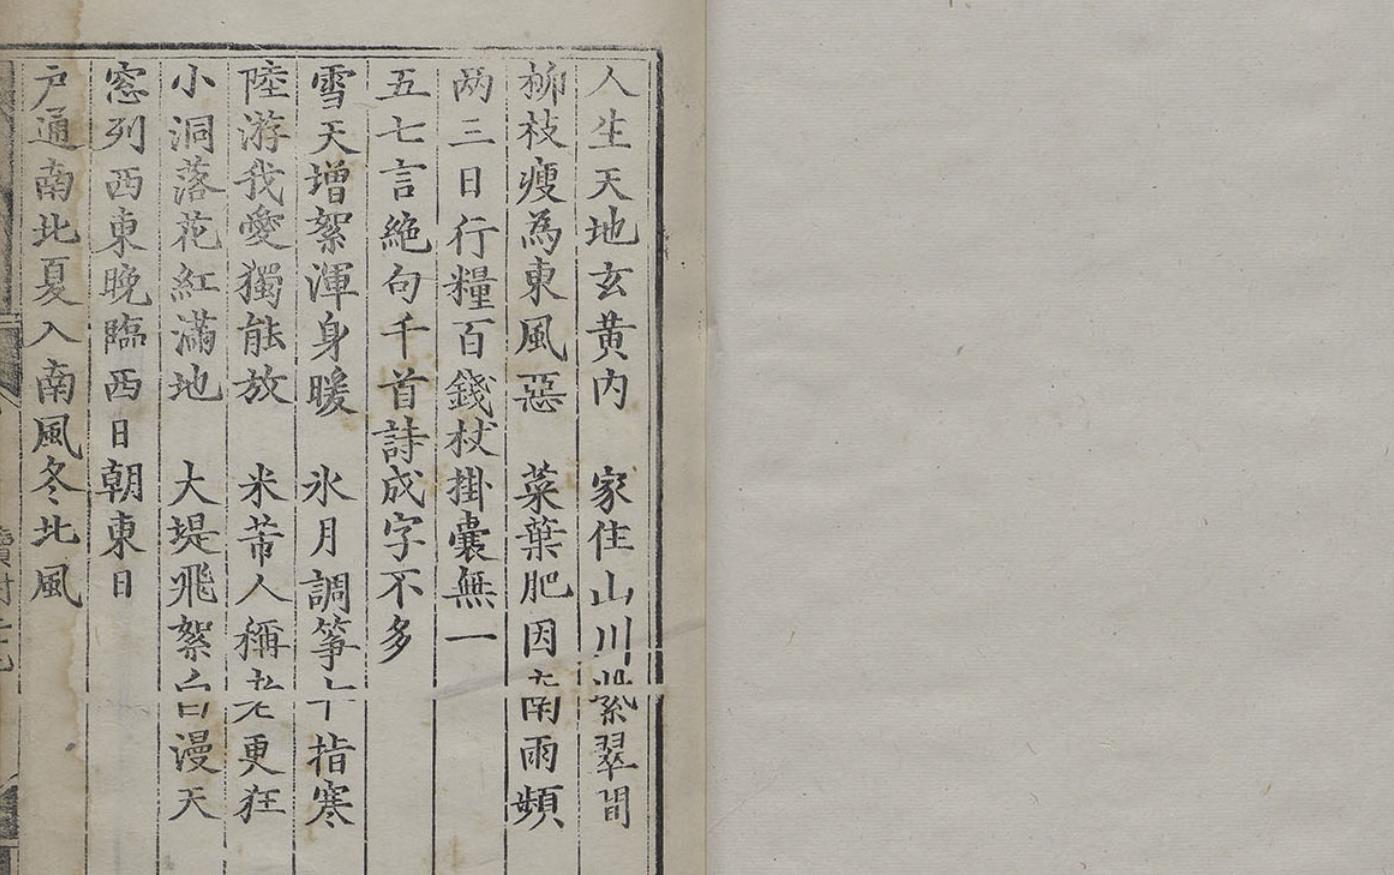 人生天地玄黄内　家住山川紫翠間
柳枝瘦為東風惡　菜葉肥因南雨頻
两三日行糧百錢杖掛囊無一
五七言絶句千首詩成字不多
雪天增絮渾身暖　氷月調筝十指寒
陸游我愛獨能放　米芾人稱老更狂
小洞落花紅滿地　大堤飛絮白漫天
窓列西東晚臨西日朝東日
户通南北夏入南風冬北風